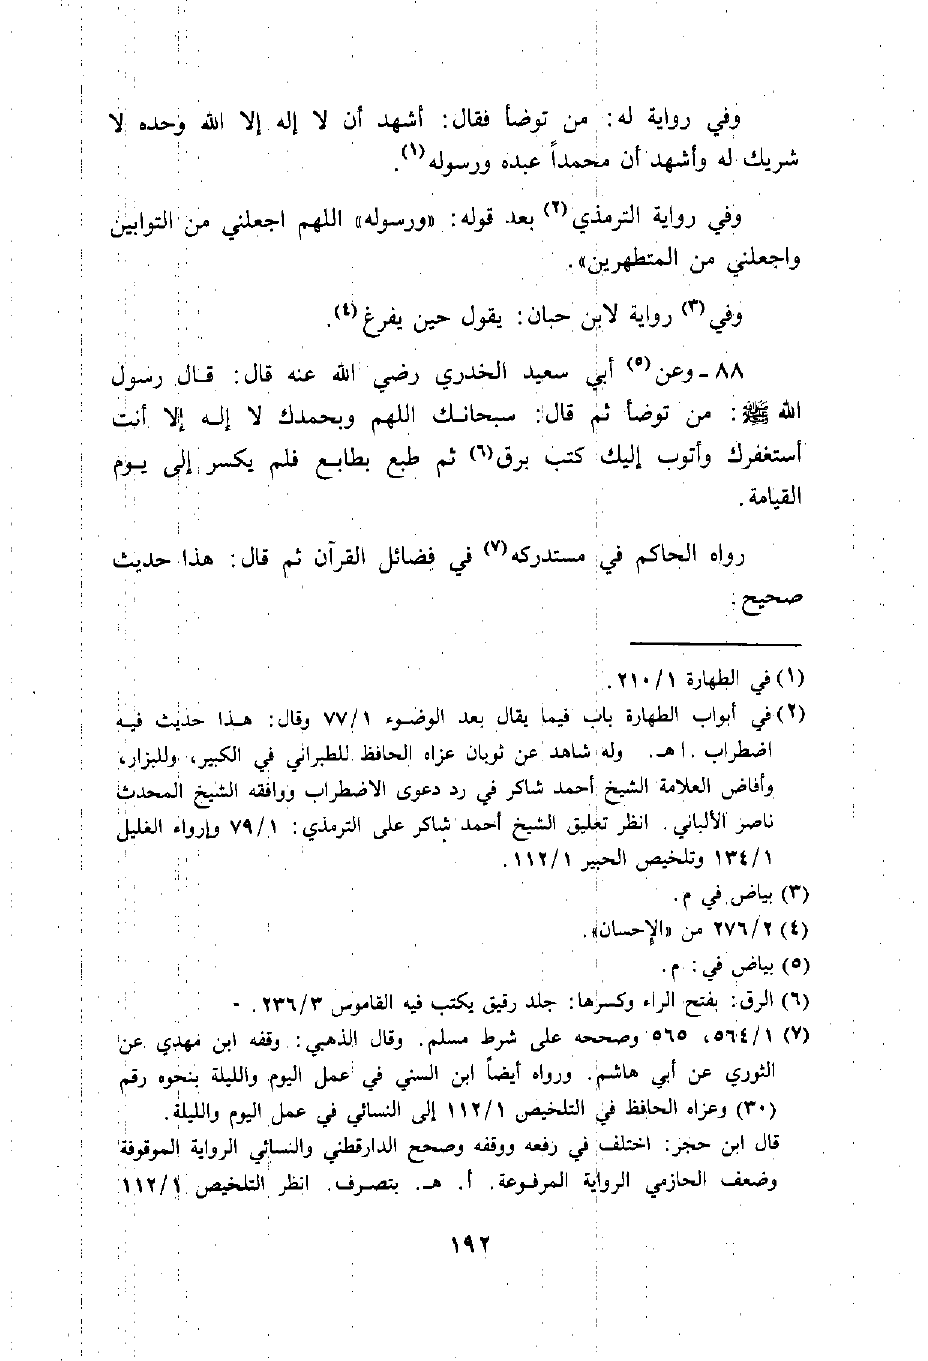 وفي رواية له: من توضأ فقال: أشهد أن لا إله إلا الله وحده لا
شريك له وأشهد أن محمداً عبده ورسوله(١).
وفي رواية الترمذي(٢) بعد قوله: «ورسوله» اللهم اجعلني من التوابين
واجعلني من المتطهرين».
وفي(٣) رواية لابن حبان: يقول حين يفرغ(٤).
٨٨ ـ وعن(٥) أبي سعيد الخدري رضي الله عنه قال: قال رسول
الله ﷺ: من توضأ ثم قال: سبحانك اللهم وبحمدك لا إله إلا أنت
أستغفرك وأتوب إليك كتب برق(٦) ثم طبع بطابع فلم يكسر إلى يوم
القيامة.
رواه الحاكم في مستدركه(٧) في فضائل القرآن ثم قال: هذا حديث
صحيح.
(١) في الطهارة ٢١٠/١.
(٢) في أبواب الطهارة باب فيما يقال بعد الوضوء ٧٧/١ وقال: هذا حديث فيه
اضطراب. اهـ. وله شاهد عن ثوبان عزاه الحافظ للطبراني في الكبير، وللبزار،
وأفاض العلامة الشيخ أحمد شاكر في رد دعوى الاضطراب ووافقه الشيخ المحدث
ناصر الألباني. انظر تعليق الشيخ أحمد شاكر على الترمذي: ٧٩/١ وإرواء الغليل
١٣٤/١ وتلخيص الحبير ١١٢/١.
(٣) بياض في م.
(٤) ٢٧٦/٢ من «الإحسان».
(٥) بياض في: م.
(٦) الرق: بفتح الراء وكسرها: جلد رقيق يكتب فيه القاموس ٢٣٦/٣. -
(٧) ٥٦٤/١، ٥٦٥ وصححه على شرط مسلم. وقال الذهبي: وقفه ابن مهدي عن
الثوري عن أبي هاشم. ورواه أيضاً ابن السني في عمل اليوم والليلة بنحوه رقم
(٣٠) وعزاه الحافظ في التلخيص ١١٢/١ إلى النسائي في عمل اليوم والليلة.
قال ابن حجر: اختلف في رفعه ووقفه وصحح الدارقطني والنسائي الرواية الموقوفة
وضعف الحازمي الرواية المرفوعة. أ. هـ. بتصرف. انظر التلخيص ١١٢/١
١٩٢